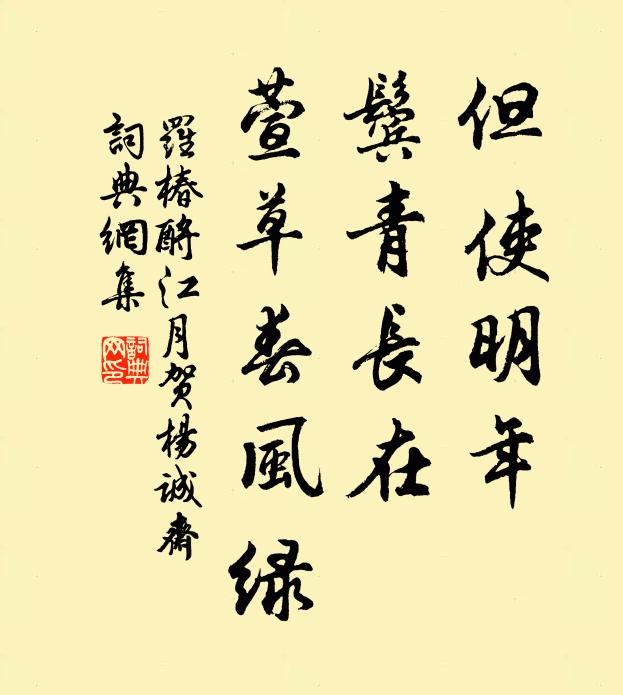 但使明年
鬢青長在
萱草春風綠
羅椿酹江月賀楊誠齋
詞典網集
詞典网印